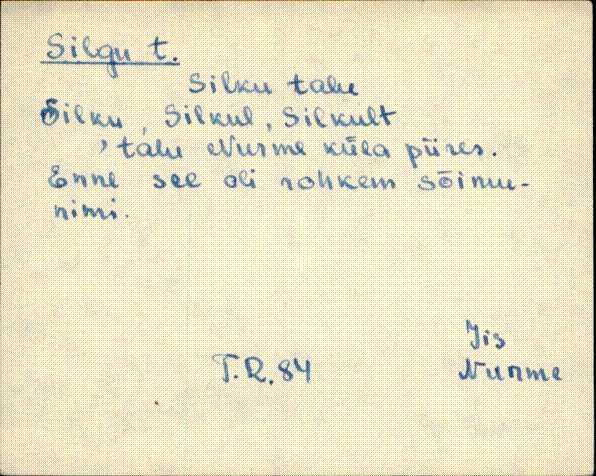 Silgu t.
Silku talu
Silku, Silkul, Silkult
, talu Nurme küla piires.
Enne see oli rohkem sõimu-
nimi.
Jis
T.R. 84 Nurme